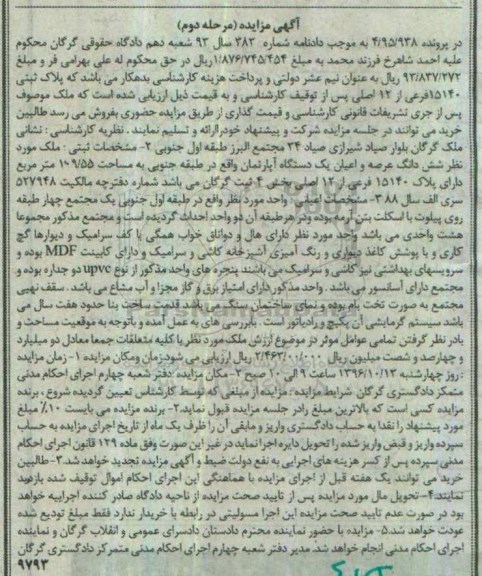 آگهی مزایده (مرحله دوم)
در پرونده ۴/۹۵/۹۳۸ به موجب دادنامه شماره ۳۸۳ سال ۹۳ شعبه دهم دادگاه حقوقی گرگان محکوم
علیه احمد شاهرخ فرزند محمد به مبلغ ۱/۸۷۶/۷۴۵/۴۵۴ ریال در حق محکوم له علی بهرامی فر و مبلغ
۹۳/۸۳۷/۲۷۲ ریال به عنوان نیم عشر دولتی و پرداخت هزینه کارشناسی بدهکار می باشد که پلاک ثبتی
۱۵۱۴۰ فرعی از ۱۲ اصلی پس از توقیف کارشناسی و به قیمت ذیل ارزیابی شده است که ملک موصوف
پس از جری تشریفات قانونی کارشناسی و قیمت گذاری از طریق مزایده حضوری بفروش می رسد طالبین
خرید می توانند در جلسه مزایده شرکت و پیشنهاد خود را ارائه و تسلیم نمایند. نظریه کارشناسی : نشانی
ملک گرگان بلوار صیاد شیرازی صیاد ۲۴ مجتمع البرز طبقه اول جنوبی ۲- مشخصات ثبتی : ملک مورد
نظر شش دانگ عرصه و اعیان یک دستگاه آپارتمان واقع در طبقه جنوبی به مساحت ۱۰۹/۵۵ متر مربع
دارای پلاک ۱۵۱۴۰ فرعی از ۱۲ اصلی بخش ۴ ثبت گرگان می باشد شماره دفترچه مالکیت ۵۲۷۹۴۸
سری الف سال ۸۸ ۳- مشخصات اعیانی : واحد مورد نظر واقع در طبقه اول جنوبی یک مجتمع چهار طبقه
روی پیلوت با اسکلت بتن آرمه بوده و در هر طبقه آن دو واحد احداث گردیده است و مجتمع مذکور مجموعا
هشت واحدی می باشد واحد مورد نظر دارای هال و دو اتاق خواب همگی با کف سرامیک و دیوارها گچ
کاری و با پوشش کاغذ دیواری و رنگ آمیزی آشپزخانه کاشی و سرامیک و دارای کابینت MDF بوده و
سرویسهای بهداشتی نیز کاشی و سرامیک می باشند پنجره های واحد مذکور از نوع upvc دو جداره بوده و
مجتمع دارای آسانسور می باشد . واحد مذکور دارای امتیاز برق و گاز مجزا و آب مشاع می باشد . سقف نهایی
مجتمع به صورت تخت بام بوده و نمای ساختمان سنگ می باشد قدمت ساخت بنا حدود هفت سال می
باشد سیستم گرمایشی آن پکیج و رادیاتور است . با بررسی های به عمل آمده و با توجه به موقعیت مساحت و
با در نظر گرفتن تمامی عوامل موثر در موضوع ارزش ملک مورد نظر با کلیه متعلقات جمعا معادل دو میلیارد
و چهارصد و شصت میلیون ریال ۲/۴۶۲/۰۰۰/۰۰۰ ریال ارزیابی می شود زمان و مکان مزایده ۱- زمان مزایده
: روز چهارشنبه ۱۳۹۶/۱۰/۱۳ ساعت ۹ الی ۱۰ صبح ۲- مکان مزایده : دفتر شعبه چهارم اجرای احکام مدنی
متمرکز دادگستری گرگان شرایط مزایده : مزایده از مبلغی که توسط کارشناس تعیین گردیده شروع ، برنده
مزایده کسی است که بالاترین مبلغ را در جلسه مزایده قبول نماید ۲- برنده مزایده می بایست ۱۰٪ مبلغ
مورد پیشنهاد را نقدا به حساب دادگستری واریز و مابقی آن را ظرف یک ماه از تاریخ اجرای مزایده به حساب
سپرده واریز و قبض واریز شده را تحویل دایره اجرا نماید در غیر این صورت وفق ماده ۱۲۹ قانون اجرای احکام
مدنی سپرده پس از کسر هزینه های اجرایی به نفع دولت ضبط و آگهی مزایده تجدید خواهد شد. ۳- طالبین
خرید می توانند یک هفته قبل از اجرای مزایده با هماهنگی این اجرای احکام اموال توقیف شده بازدید
نمایند ۴- تحویل مال مورد مزایده پس از تایید صحت مزایده از ناحیه دادگاه صادر کننده اجراییه خواهد
بود در صورت عدم تایید صحت مزایده این اجرا مسولیتی در رابطه با خریدار ندارد فقط مبلغ تودیع شده
عودت خواهد شد. ۵- مزایده با حضور نماینده محترم دادستان دادسرای عمومی و انقلاب گرگان و نماینده
اجرای احکام مدنی انجام خواهد شد. مدیر دفتر شعبه چهارم اجرای احکام مدنی متمرکز دادگستری گرگان
۹۷۹۳